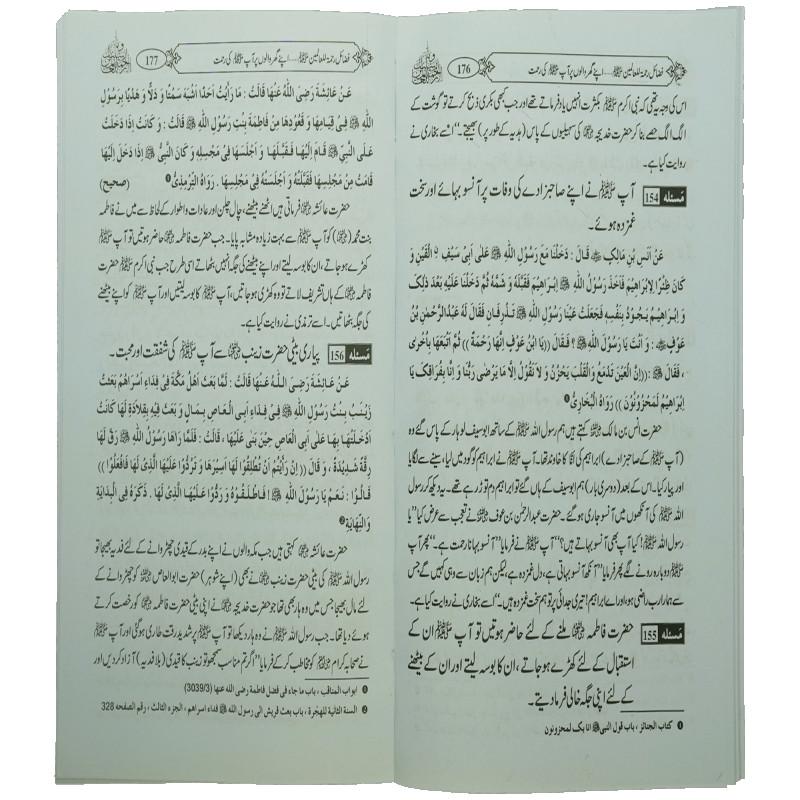 فضائل رحمۃ للعالمین ﷺ ..... اپنے گھر والوں پر آپ ﷺ کی رحمت
176
اس کی وجہ یہ تھی کہ نبی اکرم ﷺ بکثرت انہیں یاد فرماتے تھے اور جب کبھی بکری ذبح کرتے تو گوشت کے
الگ الگ حصے بنا کر حضرت خدیجہ ؓ کی سہیلیوں کے پاس (ہدیہ کے طور پر) بھیجتے۔“ اسے بخاری نے
روایت کیا ہے۔
مَسئلہ 154 آپ ﷺ نے اپنے صاحبزادے کی وفات پر آنسو بہائے اور سخت
غمزدہ ہوئے۔
عَنْ اَنَسِ بْنِ مَالِكٍ ؓ قَالَ : دَخَلْنَا مَعَ رَسُوْلِ اللّٰهِ ﷺ عَلٰى اَبِىْ سَيْفٍ الْقَيْنِ وَ
كَانَ ظِئْرًا لِاِبْرَاهِيْمَ فَاَخَذَ رَسُوْلُ اللّٰهِ ﷺ اِبْرَاهِيْمَ فَقَبَّلَهُ وَ شَمَّهُ ثُمَّ دَخَلْنَا عَلَيْهِ بَعْدَ ذٰلِكَ
وَ اِبْرَاهِيْمُ يَجُوْدُ بِنَفْسِهِ فَجَعَلَتْ عَيْنَا رَسُوْلِ اللّٰهِ ﷺ تَذْرِفَانِ فَقَالَ لَهُ عَبْدُالرَّحْمٰنِ بْنُ
عَوْفٍ ؓ : وَ اَنْتَ يَا رَسُوْلَ اللّٰهِ ﷺ ؟ فَقَالَ ((يَا ابْنَ عَوْفٍ اِنَّهَا رَحْمَةٌ )) ثُمَّ اَتْبَعَهَا بِاُخْرٰى
، فَقَالَ ﷺ :((اِنَّ الْعَيْنَ تَدْمَعُ وَ الْقَلْبَ يَحْزَنُ وَ لاَ نَقُوْلُ اِلَّا مَا يَرْضٰى رَبُّنَا وَ اِنَّا بِفِرَاقِكَ يَا
اِبْرَاهِيْمُ لَمَحْزُوْنُوْنَ )) رَوَاهُ الْبُخَارِىُّ ❶
حضرت انس بن مالک ؓ کہتے ہیں ہم رسول اللہ ﷺ کے ساتھ ابو سیف لوہار کے پاس گئے وہ
(آپ ﷺ کے صاحبزادے) ابراہیم کی انّا کا خاوند تھا۔ آپ ﷺ نے ابراہیم کو گود میں لیا، سینے سے لگایا
اور پیار کیا۔ اس کے بعد (دوسری بار) ہم ابو سیف کے ہاں گئے تو ابراہیم دم توڑ رہے تھے۔ یہ دیکھ کر رسول
اللہ ﷺ کی آنکھوں میں آنسو جاری ہو گئے۔ حضرت عبدالرحمٰن بن عوف ؓ نے تعجب سے عرض کیا ”یا
رسول اللہ ﷺ! کیا آپ بھی آنسو بہاتے ہیں؟“ آپ ﷺ نے فرمایا ”آنسو بہانا رحمت ہے۔“ پھر آپ
ﷺ دوبارہ رونے لگے پھر فرمایا ”آنکھ آنسو بہاتی ہے، دل غمزدہ ہے، لیکن ہم زبان سے وہی کہیں گے جس
سے ہمارا رب راضی ہو، اور اے ابراہیم! تیری جدائی پر تو ہم سخت غمزدہ ہیں۔“ اسے بخاری نے روایت کیا ہے۔
مَسئلہ 155 حضرت فاطمہ ؓ ملنے کے لئے حاضر ہوتیں تو آپ ﷺ ان کے
استقبال کے لئے کھڑے ہو جاتے، ان کا بوسہ لیتے اور ان کے بیٹھنے
کے لئے اپنی جگہ خالی فرما دیتے۔
❶ كتاب الجنائز ، باب قول النبى ﷺ انا بك لمحزونون
فضائل رحمۃ للعالمین ﷺ ..... اپنے گھر والوں پر آپ ﷺ کی رحمت
177
عَنْ عَائِشَةَ رَضِىَ اللّٰهُ عَنْهَا قَالَتْ : مَا رَاَيْتُ اَحَدًا اَشْبَهَ سَمْتًا وَ دَلًّا وَ هَدْيًا بِرَسُوْلِ
اللّٰهِ ﷺ فِىْ قِيَامِهَا وَ قُعُوْدِهَا مِنْ فَاطِمَةَ بِنْتِ رَسُوْلِ اللّٰهِ ﷺ قَالَتْ : وَ كَانَتْ اِذَا دَخَلَتْ
عَلَى النَّبِىِّ ﷺ قَامَ اِلَيْهَا فَقَبَّلَهَا وَ اَجْلَسَهَا فِىْ مَجْلِسِهِ وَ كَانَ النَّبِىُّ ﷺ اِذَا دَخَلَ اِلَيْهَا
قَامَتْ مِنْ مَجْلِسِهَا فَقَبَّلَتْهُ وَ اَجْلَسَتْهُ فِىْ مَجْلِسِهَا . رَوَاهُ التِّرْمِذِىُّ ❶ (صحيح)
حضرت عائشہ ؓ فرماتی ہیں اٹھنے بیٹھنے، چال چلن اور عادات و اطوار کے لحاظ سے میں نے فاطمہ
بنت محمد (ﷺ) کو آپ ﷺ سے بہت زیادہ مشابہ پایا۔ جب حضرت فاطمہ ؓ حاضر ہوتیں تو آپ ﷺ
کھڑے ہو جاتے، ان کا بوسہ لیتے اور اپنے بیٹھنے کی جگہ انہیں بٹھاتے اسی طرح جب نبی اکرم ﷺ حضرت
فاطمہ ؓ کے ہاں تشریف لاتے تو وہ کھڑی ہو جاتیں، آپ ﷺ کا بوسہ لیتیں اور آپ ﷺ کو اپنے بیٹھنے
کی جگہ بٹھاتیں۔ اسے ترمذی نے روایت کیا ہے۔
مَسئلہ 156 پیاری بیٹی حضرت زینب ؓ سے آپ ﷺ کی شفقت اور محبت۔
عَنْ عَائِشَةَ رَضِىَ اللّٰهُ عَنْهَا قَالَتْ : لَمَّا بَعَثَ اَهْلُ مَكَّةَ فِىْ فِدَاءِ اَسْرَاهُمْ بَعَثَتْ
زَيْنَبُ بِنْتُ رَسُوْلِ اللّٰهِ ﷺ فِىْ فِدَاءِ اَبِى الْعَاصِ بِمَالٍ وَ بَعَثَتْ فِيْهِ بِقَلَادَةٍ لَهَا كَانَتْ
اَدْخَلَتْهَا بِهَا عَلٰى اَبِى الْعَاصِ حِيْنَ بَنٰى عَلَيْهَا ، قَالَتْ : فَلَمَّا رَاَهَا رَسُوْلُ اللّٰهِ ﷺ رَقَّ لَهَا
رِقَّةً شَدِيْدَةً ، وَ قَالَ (( اِنْ رَاَيْتُمْ اَنْ تُطْلِقُوْا لَهَا اَسِيْرَهَا وَ تَرُدُّوْا عَلَيْهَا الَّذِىْ لَهَا فَافْعَلُوْا ))
قَالُوْا : نَعَمْ يَا رَسُوْلَ اللّٰهِ ﷺ ! فَاَطْلَقُوْهُ وَ رَدُّوْا عَلَيْهَا الَّذِىْ لَهَا . ذَكَرَهُ فِى الْبِدَايَةِ
وَ النِّهَايَةِ ❷
حضرت عائشہ ؓ کہتی ہیں جب مکہ والوں نے اپنے بدر کے قیدی چھڑوانے کے لئے فدیہ بھیجا تو
رسول اللہ ﷺ کی بیٹی حضرت زینب ؓ نے بھی (اپنے شوہر) حضرت ابوالعاص ؓ کو چھڑوانے کے
لئے مال بھیجا جس میں وہ ہار بھی تھا جو حضرت خدیجہ ؓ نے اپنی بیٹی حضرت فاطمہ ؓ کو رخصت کرتے
ہوئے دیا تھا۔ جب رسول اللہ ﷺ نے وہ ہار دیکھا تو آپ ﷺ پر شدید رقت طاری ہو گئی اور آپ ﷺ
نے صحابہ کرام ؓ کو مخاطب کر کے فرمایا ”اگر تم مناسب سمجھو تو زینب کا قیدی (بلا فدیہ) آزاد کر دیں اور
❶ ابواب المناقب ، باب ما جاء فى فضل فاطمة رضى الله عنها (3039/3)
❷ السنة الثانية للهجرة ، باب بعث قريش الى رسول الله ﷺ فداء اسراهم ، الجزء الثالث ، رقم الصفحه 328